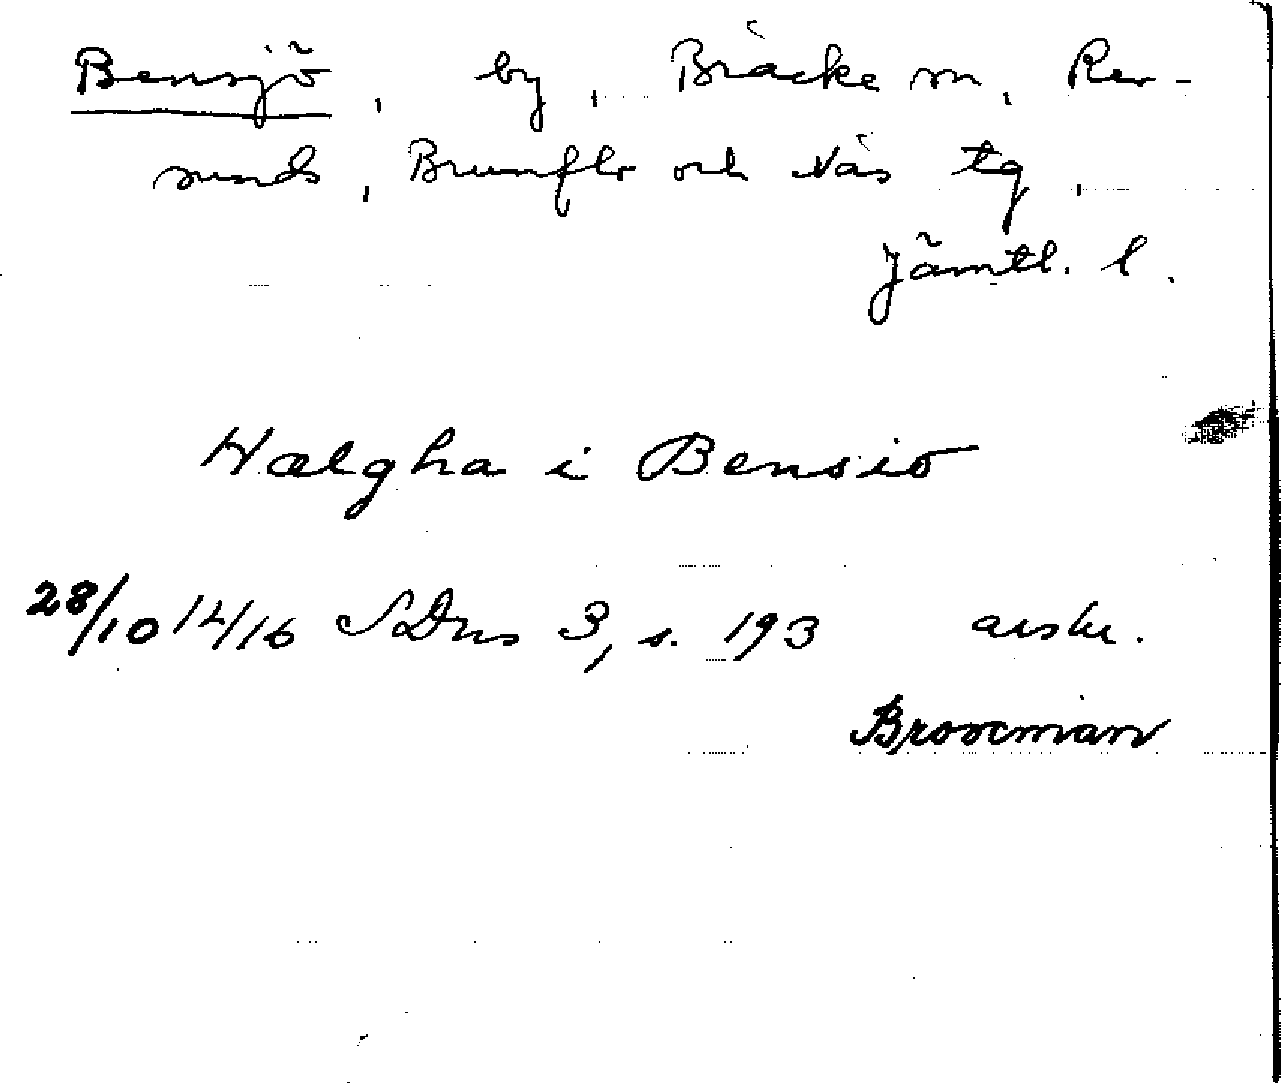 Bensjö, by, Bräcke sn, Rev-
sunds, Brunflo och Näs tg,
Jämtl. l.
Hælgha i Bensio
28/10 1416 SDns 3, s. 193 avskr.
Brovemian